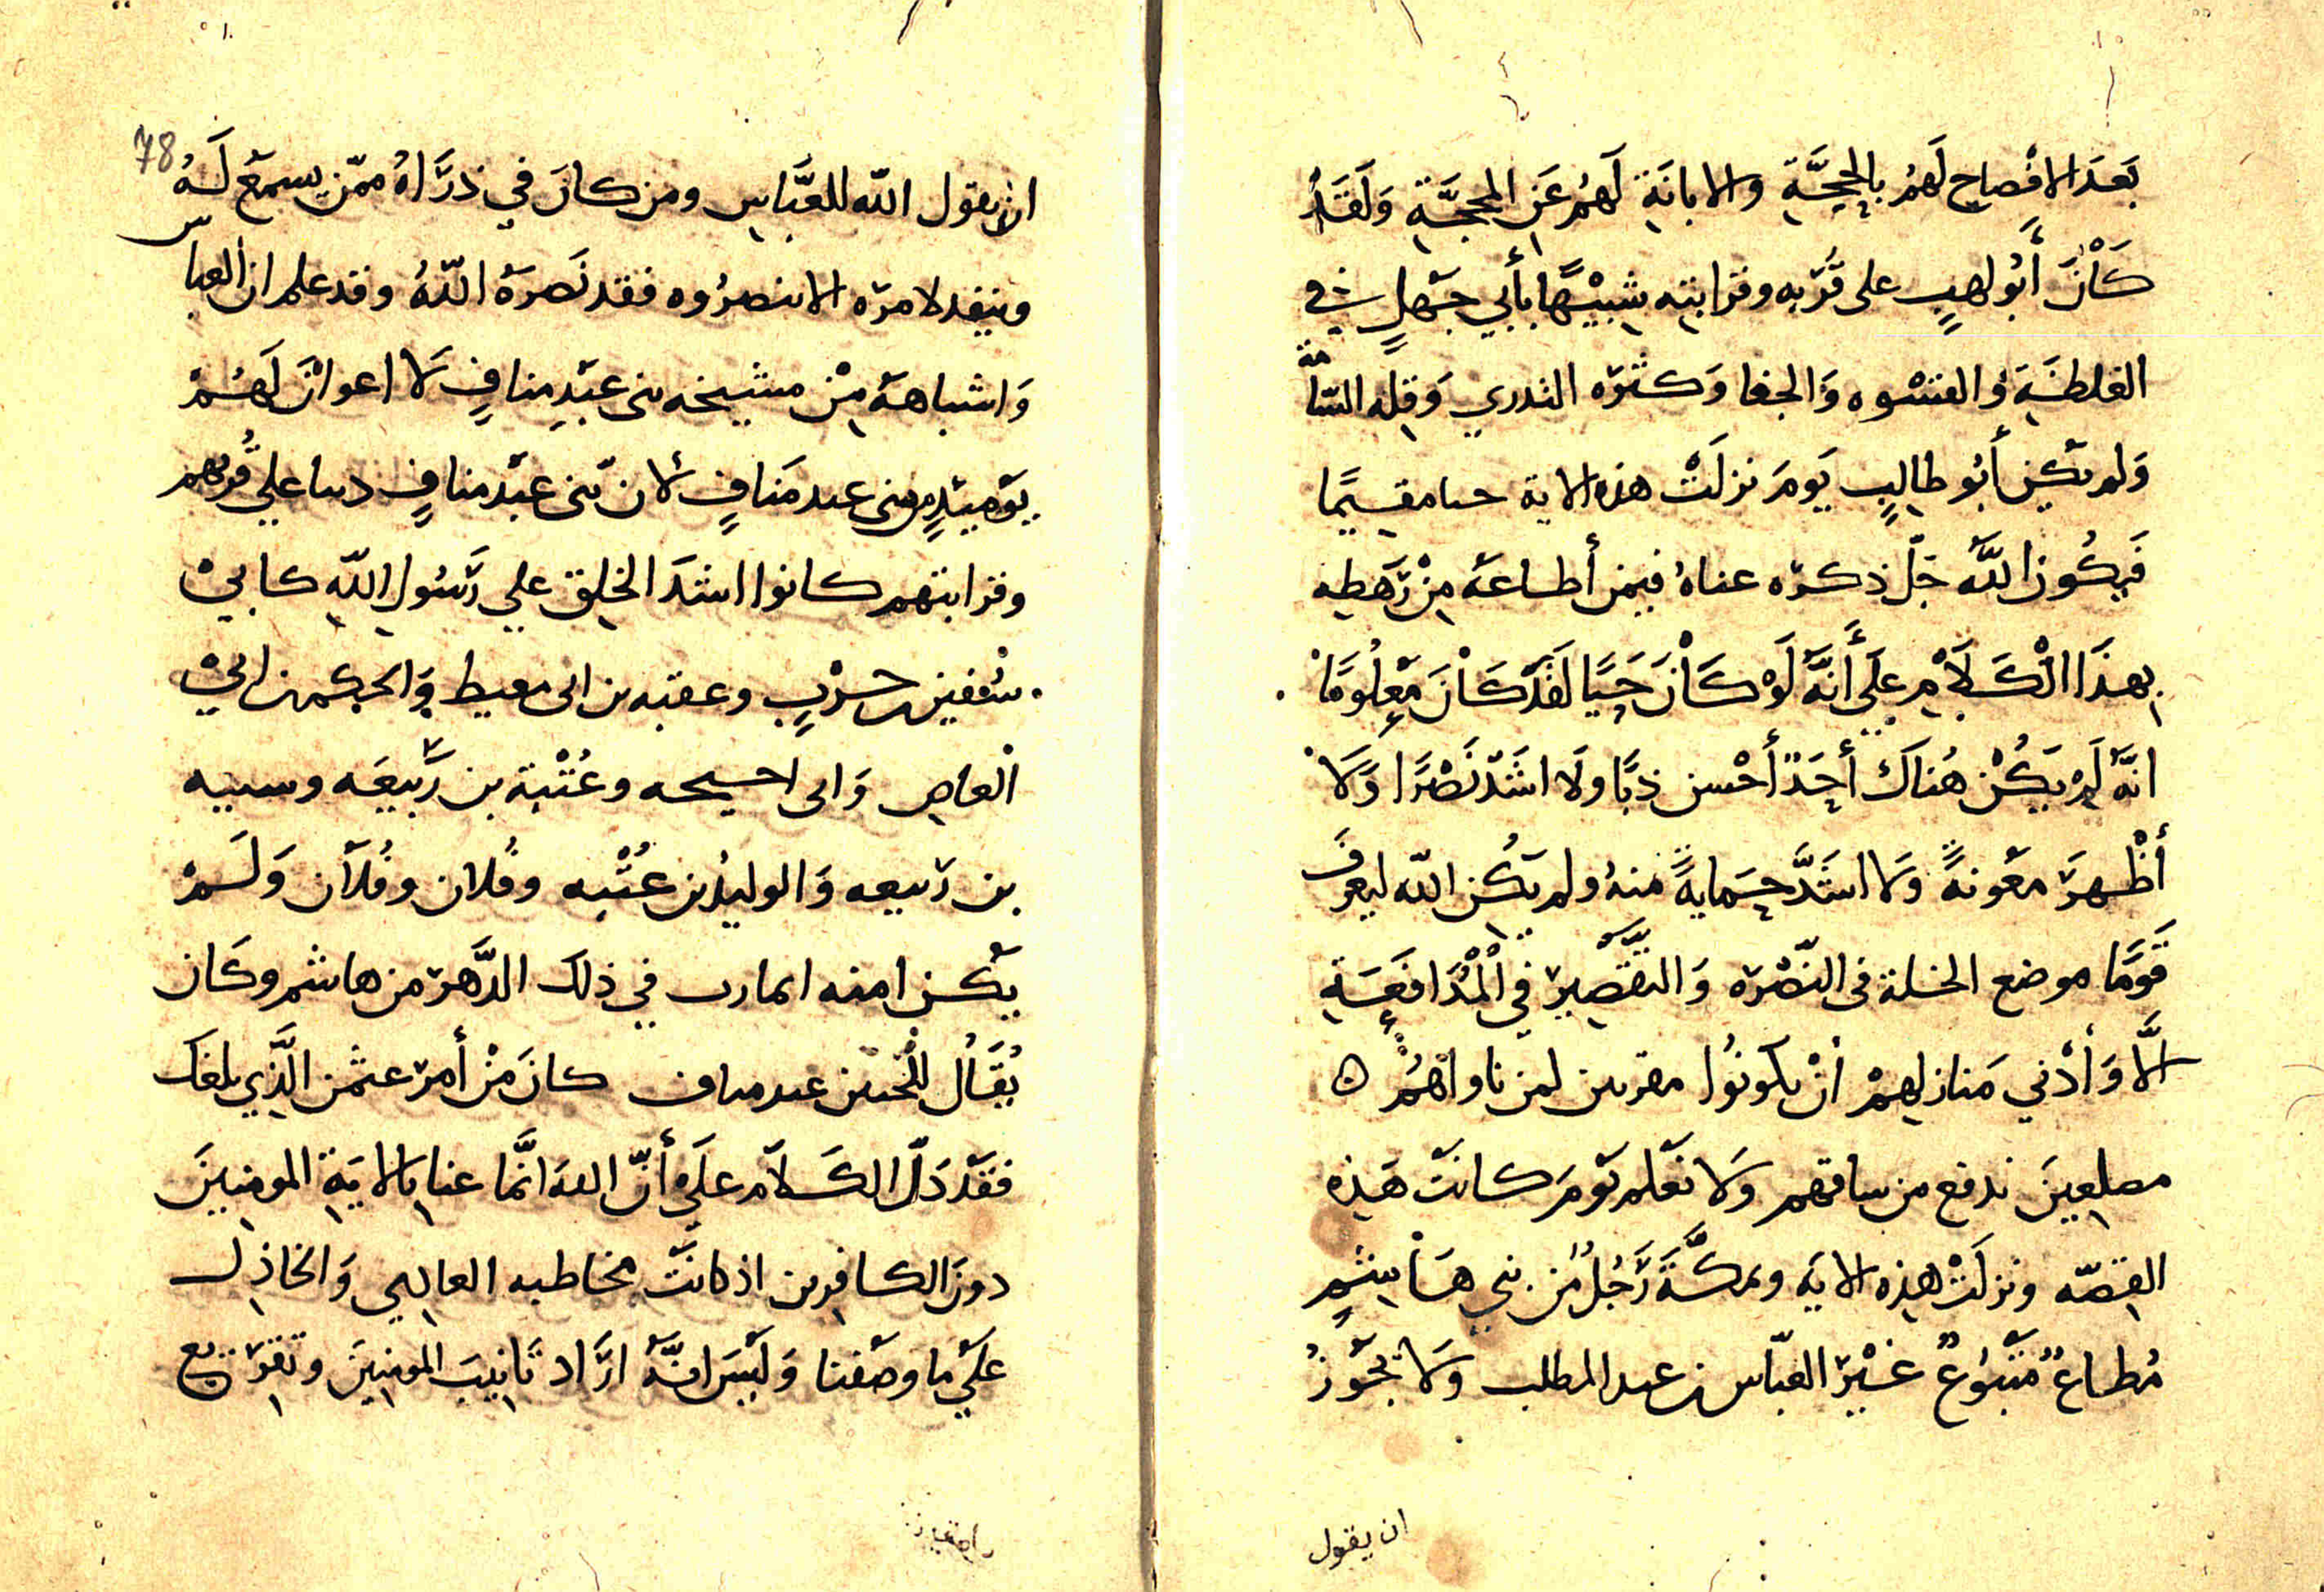 بَعدَ الافْصاح لَهمُ بِالحجَّةِ والابانَةِ لَهمُ عَنِ المحجَّةِ وَلَقَدْ
كَأنَ أَبُو لهبٍ على قُرْبه وقرابتِه شبيْهًا بأبي جَهلٍ في
الغلظَةِ وَالقسْوه وَالجفا وَكثرَه التدري وَقِلةِ السَّاَمَة
وَلم يكن أَبُو طالِبٍ يَومَ نزلَتْ هذه الاية حيا مقيمًا
فَيكُون اللّه جَلّ ذكرَه عناهُ فيمن أطاعهَ مِنْ رَهطِه
بِهذَا الْكَلَامِ عَلَى أَنَّهُ لَوْ كَانَ حَيًا لَقَدْ كَانَ مَعْلُومًا
انهُّ لَمْ يَكُنْ هُناكَ أَحَدٌ أَحْسن ذبًا ولَا اشَدّ نَصْرًا وَلَا
أَظْهرَ معَونةً وَلا اشَدَّ حِمايةً منهُ ولم يَكُن اللّه ليعرفَ
قَومًا موضع الخلة في النّصْرَه وَالتقْصِيرَ في الْمُدَافَعَةِ
الَّا وَأدْني مَنازلهِمْ أنْ يكونُوا مقرنين لمن ناواهُمْ ه
مصلعِينَ ندفع من ساقهم وَلا نعْلم يَومَ كانتْ هَذِه
القِصّه ونزلَتْ هذِه الايَه وبمكَّةَ رَجُلٌ مِن بَنِي هَاشِمٍ
مُطاعٌ مَتْبُوعٌ غَيْرَ العَبّاس بن عبد المطلب وَلا يَجوَزُ
ان يقول
78
ان يقول اللّه للعَبَّاسِ ومن كانَ في ذرَاهُ ممّن يسمَعُ لَهُ
وينفد لامرَه الا نصرُوه فقد نَصرَهُ اللّهُ وقد علم ان العباسّ
وَاشباهَهُ مِنْ مشيخه بني عبْدِ منافٍ لا اعوانَ لَهُمْ
يَوميَذٍ من بني عبد مَنافٍ لأن بني عبْد منافٍ دينا علي قُربهم
وقرابتهم كانوا اشدَ الخلقِ علي رَسُولِ اللّهِ كابيْ
سُفين حرْبٍ وعقبه بن ابي معيط وَالحكم بن ابيْ
الْعاصِ وَابي احيحه وعُتْبَة بن رَبيعَه وسيبه
بن رَبيعه وَالوليدُ بن عُتْبه وفُلان وفُلَان وَلَمْ
يكن امنه المارب في ذلك الدَّهرَ من هاشم وكَان
يُقَالُ للْحيين عبد مناف كانَ مَنْ أمرَ عثمن الَّذِي بلغك
فقَدْ دَلّ الكَلاَم علَى أنّ اللهَ انَّما عنا بِالايَةِ المومنِينَ
دونَ الكافِرين اذ كانتْ مخاطبه العالِمِي وَالخاذِل
علَى ما وصَفنا وَليْسَ انهَّ ارَاد تَانِيبَ المومنِينَ وتقرَيع